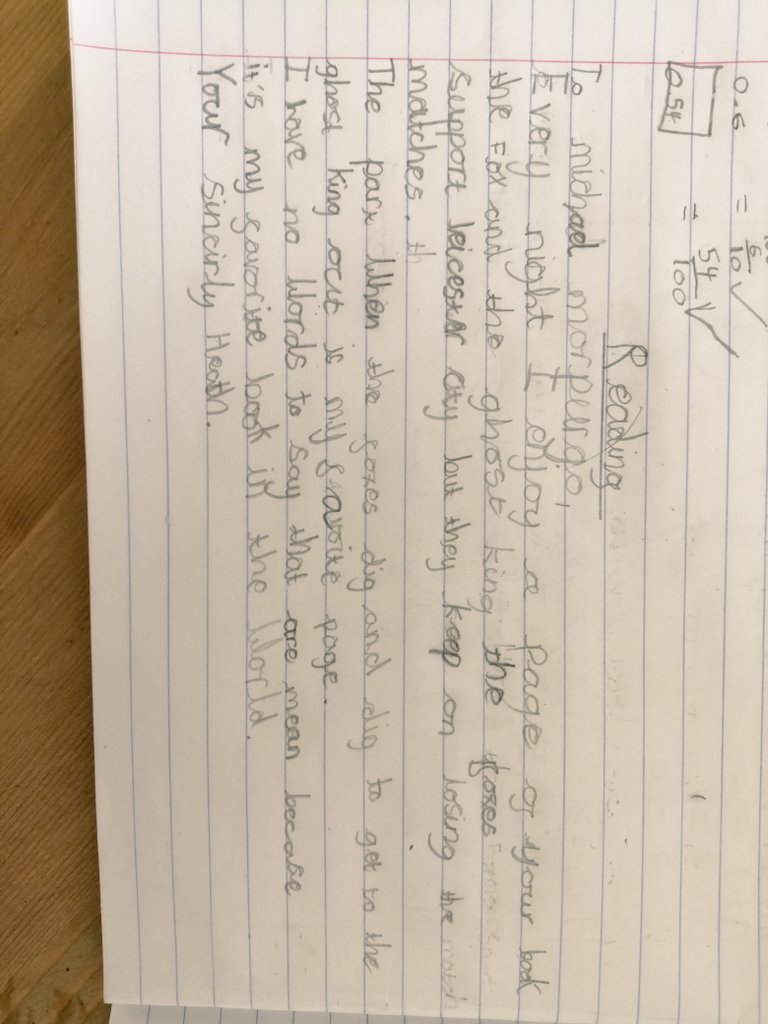 0.6 = 6/10 ✓
0.54 = 54/100 ✓
Reading
To michael morpurgo,
Every night I enjoy a page of your book
the Fox and the ghost king the foxes
support leicester city but they keep on losing the match
matches. th
The parx when the foxes dig and dig to get to the
ghost king out is my favorite page.
I have no words to say that are mean because
it's my favorite book in the world.
Your sincirly Heath.